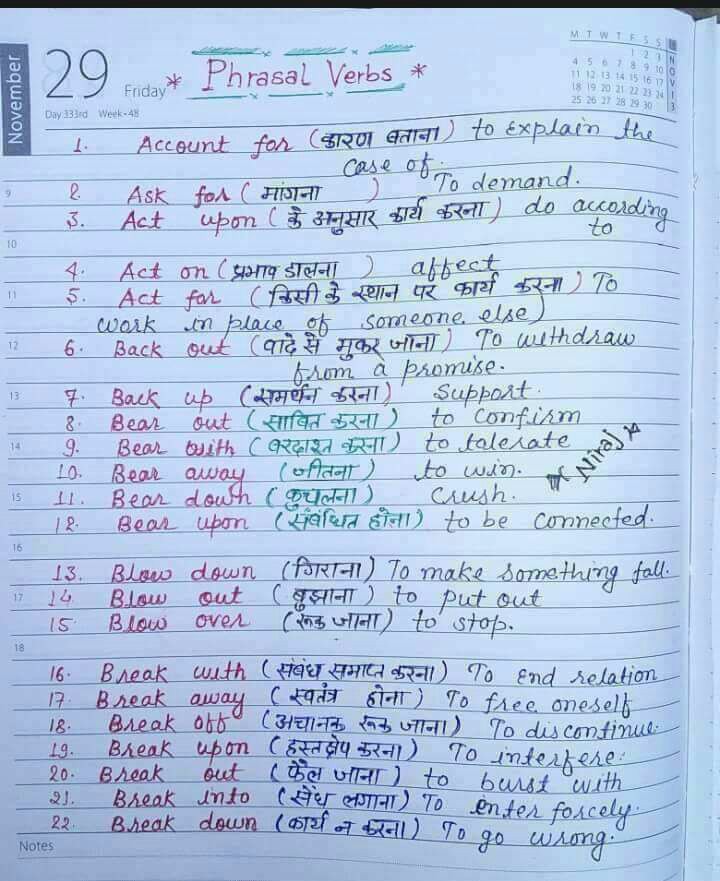 November
29 Friday
Day 333rd Week-48
* Phrasal Verbs *
M T W T F S S
1 2 3
4 5 6 7 8 9 10
11 12 13 14 15 16 17
18 19 20 21 22 23 24
25 26 27 28 29 30
NOV 13
1. Account for (कारण बताना) to Explain the
case of.
2. Ask for (मांगना) To demand.
3. Act upon (के अनुसार कार्य करना) do according
to
4. Act on (प्रभाव डालना) affect
5. Act for (किसी के स्थान पर कार्य करना) To
work in place of someone else)
6. Back out (वादे से मुकर जाना) To withdraw
from a promise.
7. Back up (समर्थन करना) Support.
8. Bear out (साबित करना) to confirm
9. Bear with (बरदाश्त करना) to talerate
10. Bear away (जीतना) to win.
Niraj
11. Bear down (कुचलना) Crush.
12. Bear upon (संबंधित होना) to be connected.
13. Blow down (गिराना) To make something fall.
14. Blow out (बुझाना) to put out
15 Blow over (रूक जाना) to stop.
16. Break with (संबंध समाप्त करना) To End relation
17. Break away (स्वतंत्र होना) To free oneself
18. Break off (अचानक रूक जाना) To discontinue.
19. Break upon (हस्तक्षेप करना) To interfere.
20. Break out (फैल जाना) to burst with
21. Break into (सेंध लगाना) To enter forcely.
22. Break down (कार्य न करना) To go wrong.
9
10
11
12
13
14
15
16
17
18
Notes